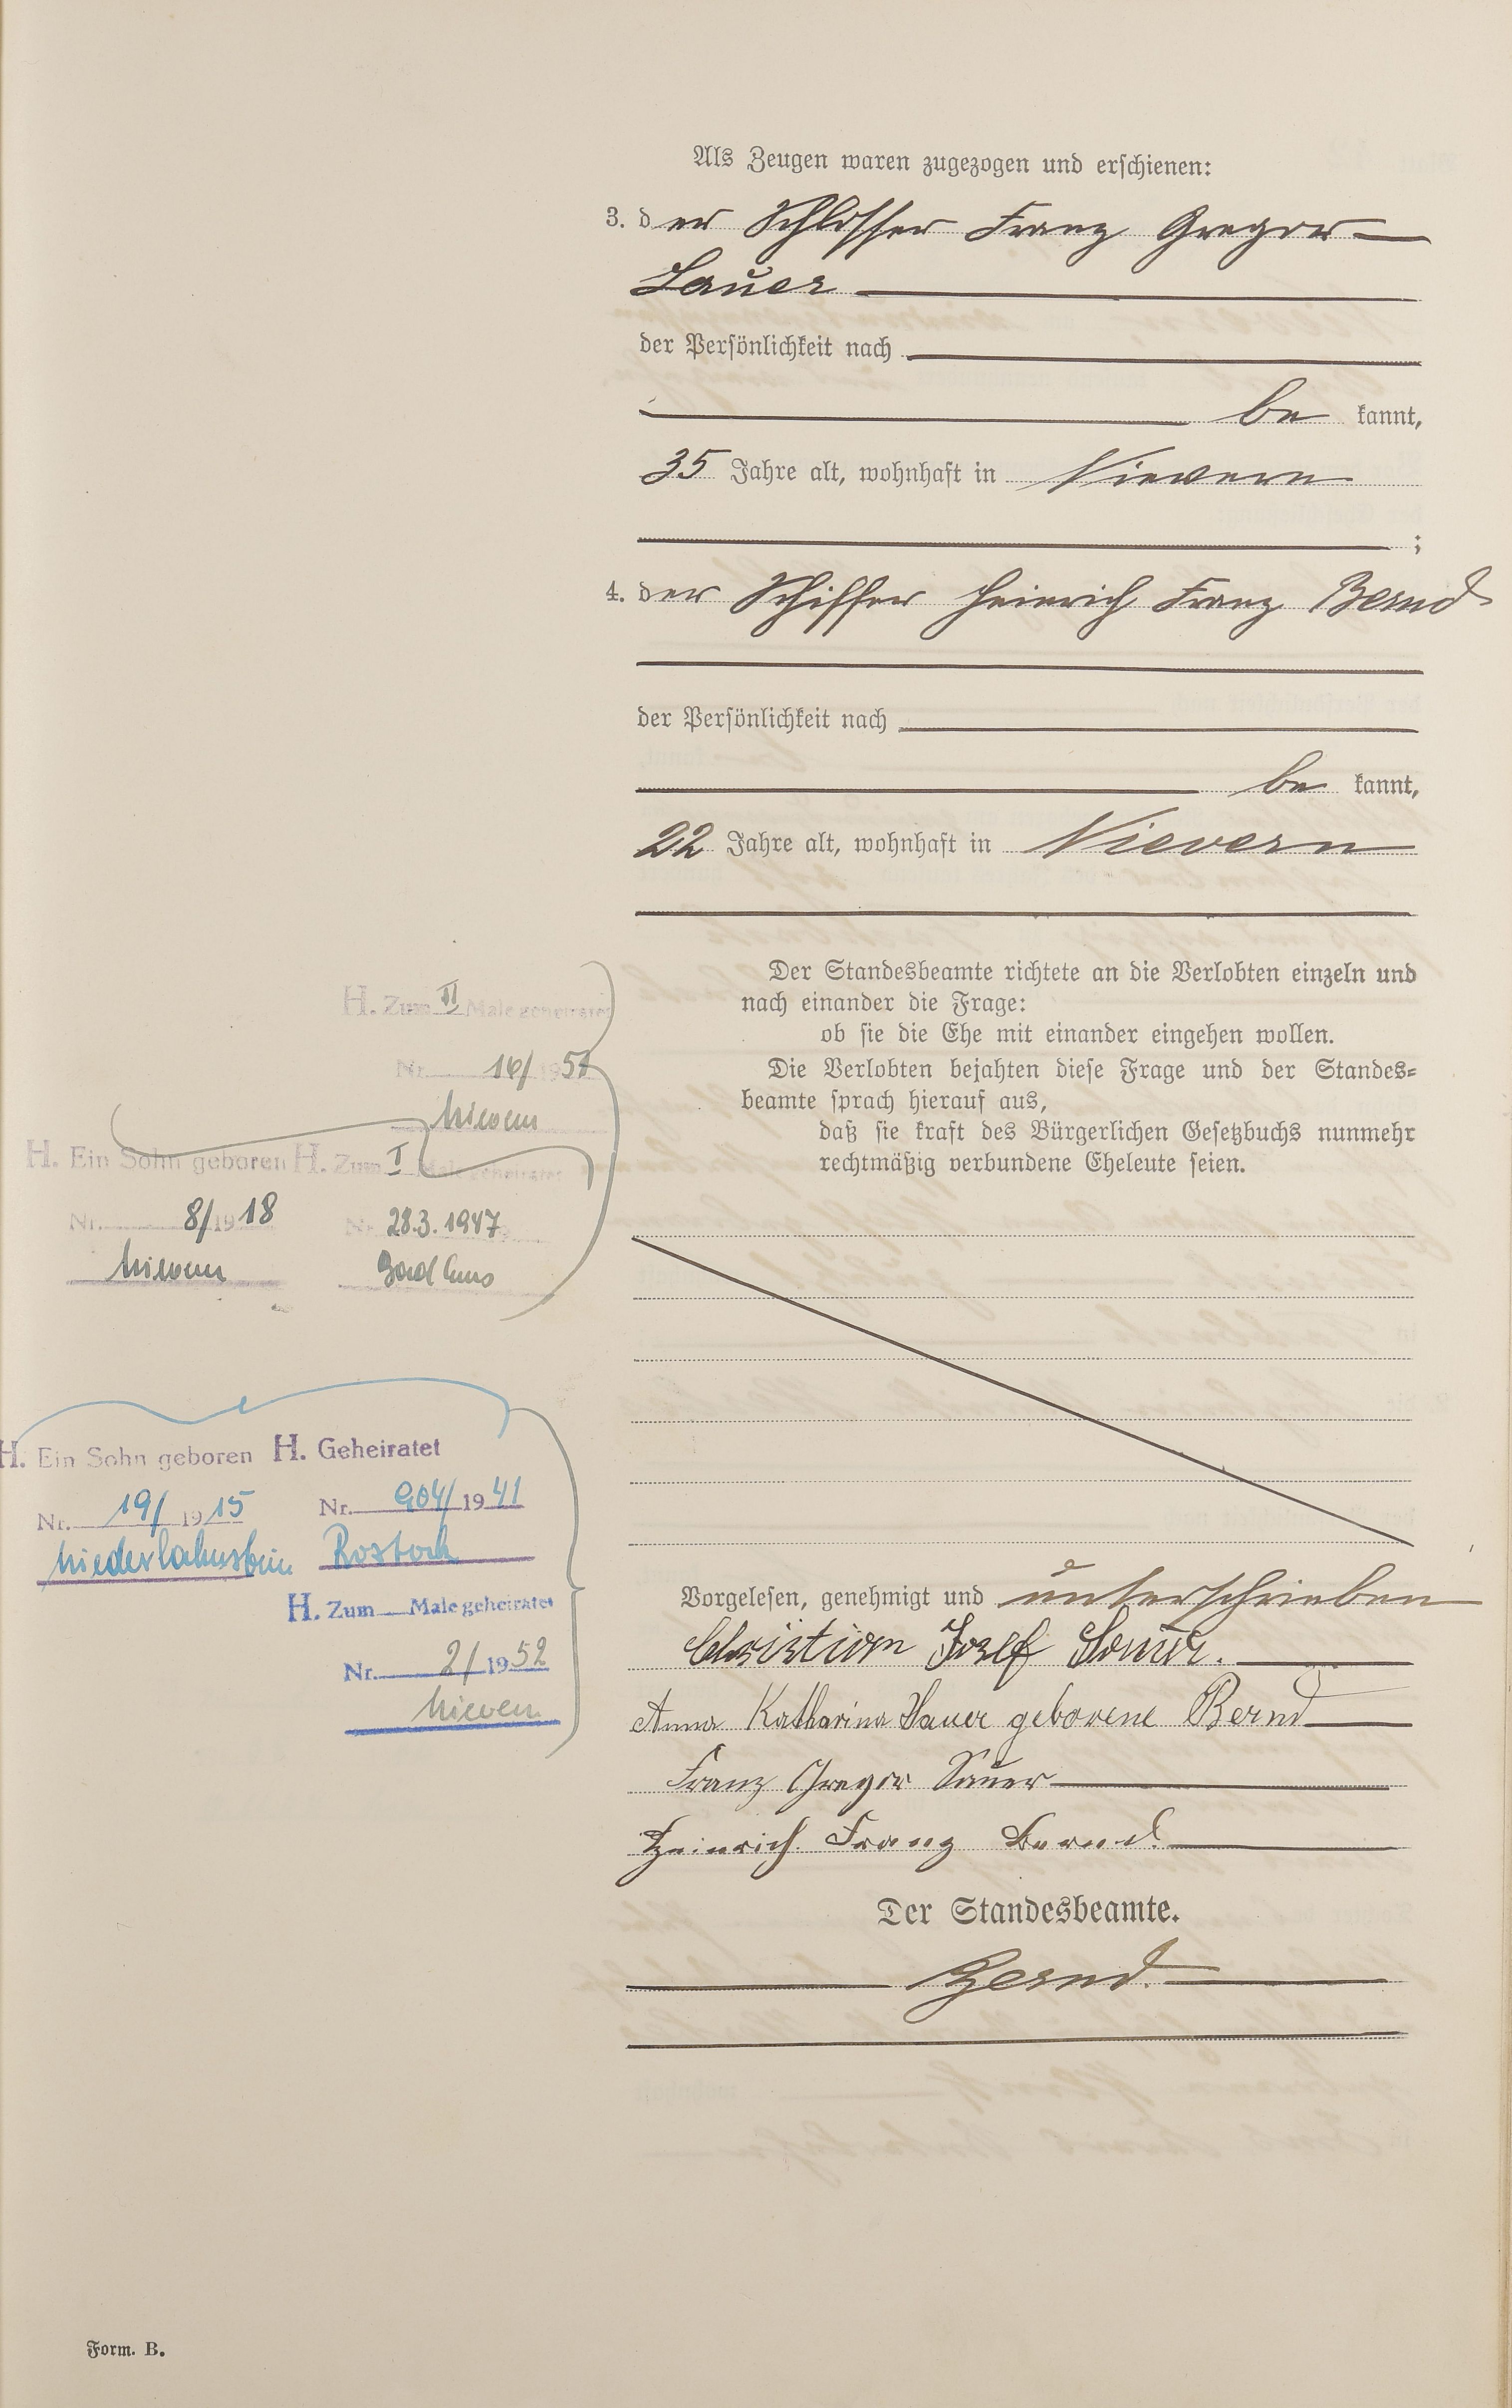 Als Zeugen waren zugezogen und erschienen:
3. der Schlosser Franz Gregor
Sauer
der Persönlichkeit nach
be kannt,
35 Jahre alt, wohnhaft in Nievern
;
4. der Schiffer Heinrich Franz Bernd
der Persönlichkeit nach
be kannt,
22 Jahre alt, wohnhaft in Nievern
Der Standesbeamte richtete an die Verlobten einzeln und
nach einander die Frage:
ob sie die Ehe mit einander eingehen wollen.
Die Verlobten bejahten diese Frage und der Standes-
beamte sprach hierauf aus,
daß sie kraft des Bürgerlichen Gesetzbuchs nunmehr
rechtmäßig verbundene Eheleute seien.
H. Zum II Male geheiratet
Nr. 16/1951
Nievern
H. Ein Sohn geboren
Nr. 8/1918
Nievern
H. Zum I Male geheiratet
Nr. 28.3.1947
Bad Ems
H. Ein Sohn geboren
Nr. 19/1915
Niederlahnstein
H. Geheiratet
Nr. 904/1941
Rostock
H. Zum Male geheiratet
Nr. 2/1952
Nievern
Vorgelesen, genehmigt und unterschrieben
Christian Josef Sauer.
Anna Katharina Sauer geborene Bernd
Franz Gregor Sauer
Heinrich Franz Bernd.
Der Standesbeamte.
Bernd.
Form. B.